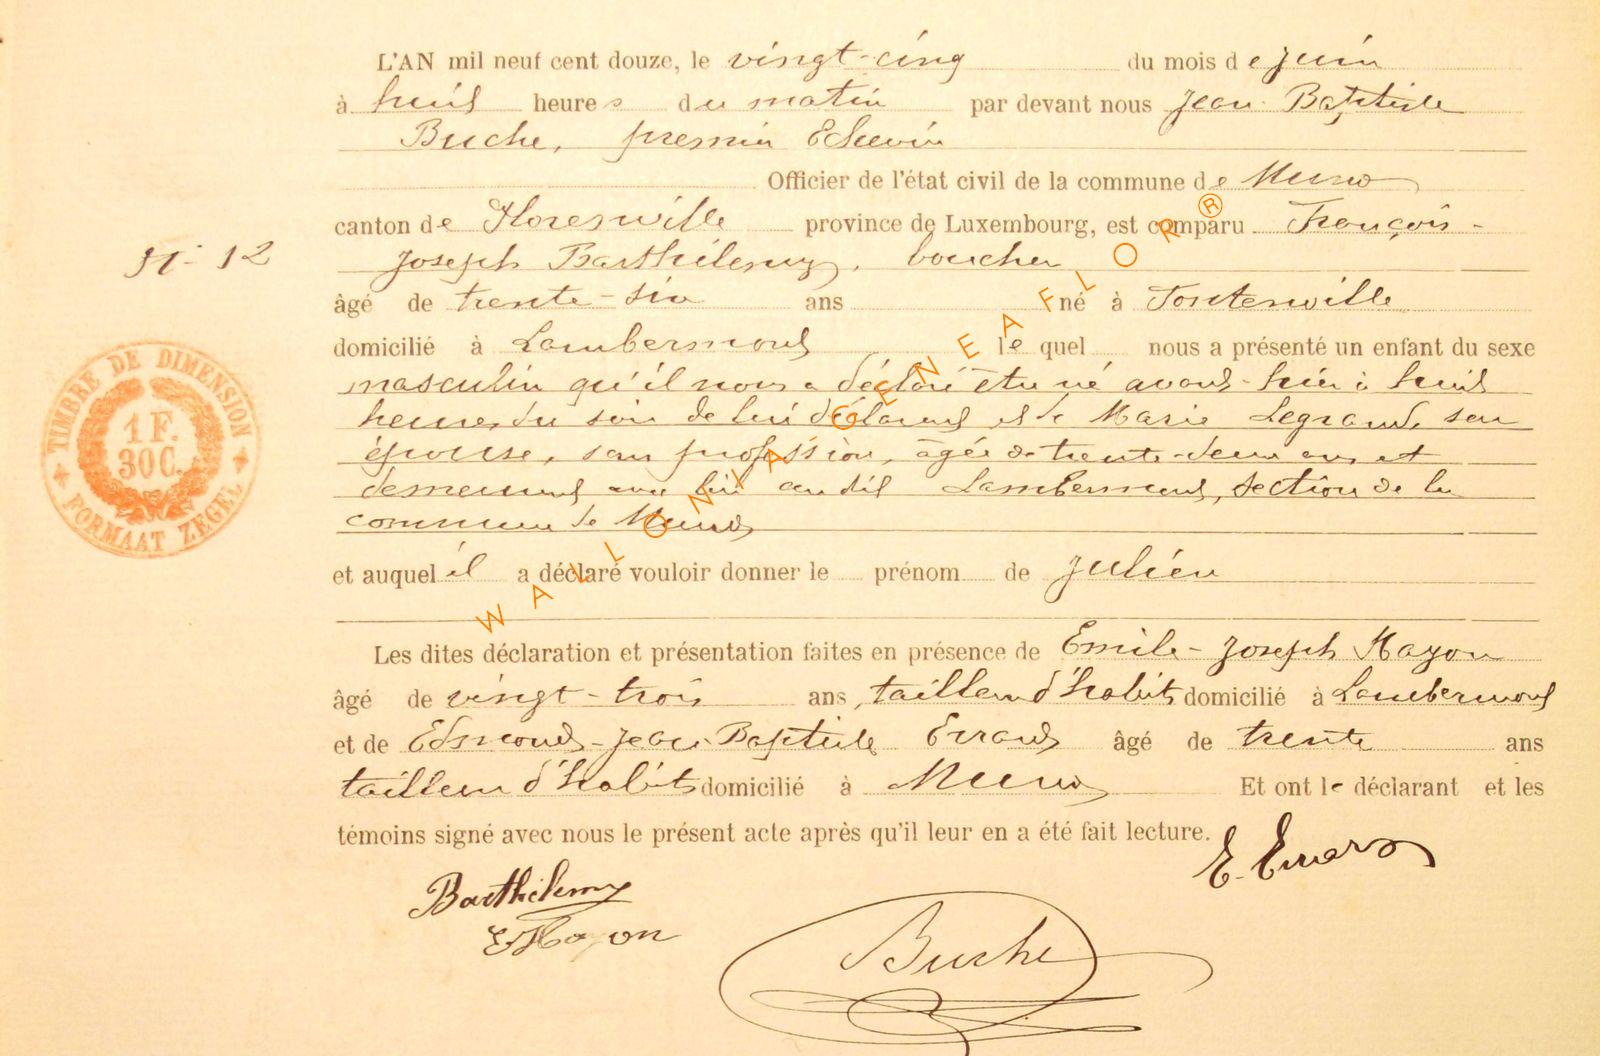 L'AN mil neuf cent douze, le vingt-cinq du mois de juin
à huit heures du matin par devant nous Jean Baptiste
Buche, premier Echevin
Officier de l'état civil de la commune de Muno
canton de Florenville province de Luxembourg, est comparu François-
N° 12
Joseph Barthélemy, boucher
âgé de trente-six ans né à Fontenoille
domicilié à Lambermont le quel nous a présenté un enfant du sexe
masculin qu'il nous a déclaré être né avant-hier à huit
heures du soir de lui déclarant et de Marie Legrand, son
épouse, sans profession, âgée de trente-deux ans et
demeurant avec lui audit Lambermont, section de la
commune de Muno
et auquel il a déclaré vouloir donner le prénom de Julien
Les dites déclaration et présentation faites en présence de Emile-Joseph Hayon
âgé de vingt-trois ans, tailleur d'habits domicilié à Lambermont
et de Edmond-Jean-Baptiste Errard âgé de trente ans
tailleur d'habits domicilié à Muno Et ont le déclarant et les
témoins signé avec nous le présent acte après qu'il leur en a été fait lecture.
E. Errard
Barthélemy
E Hayon
Buche
TIMBRE DE DIMENSION
1 F.
30 C.
FORMAAT ZEGEL
WALLONIA GENEAFLOR ®